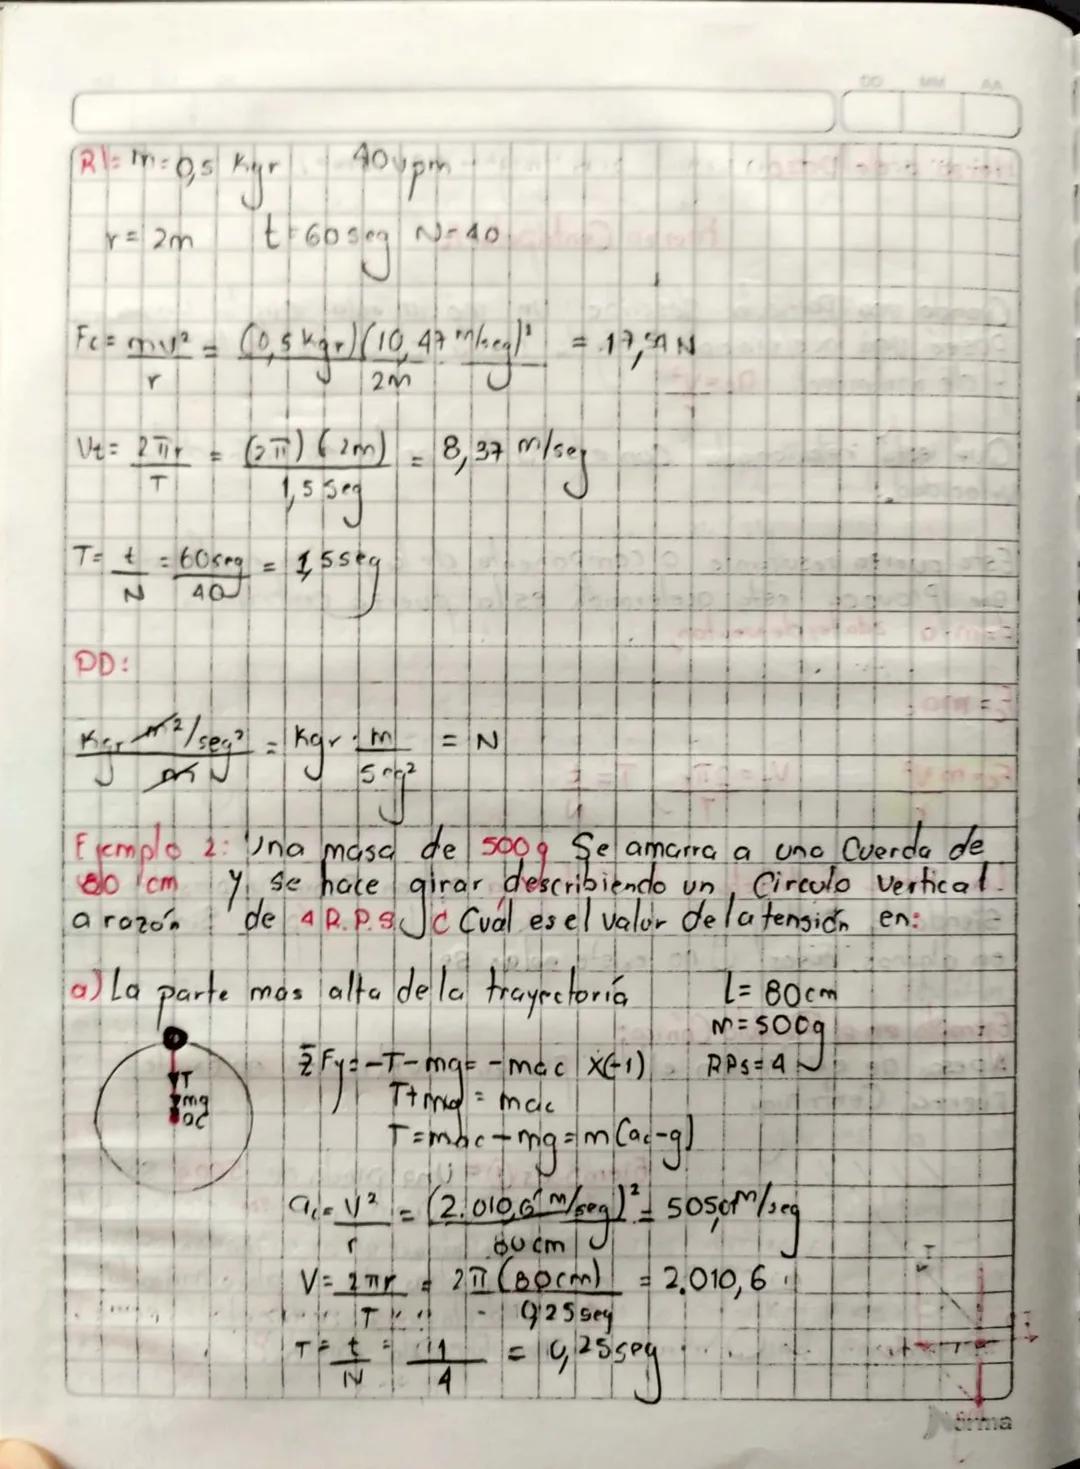 R/= m=0,5 Kgr 40vpm
r= 2m t=60seg N=40
Fc= mv² / r = (0,5 Kgr)(10,47 m/seg)² / 2m = 17,51 N
Vt= 2πr / T = (2π)(2m) / 1,5 seg = 8,37 m/seg
T= t / N = 60seg / 40 = 1,5seg
DD:
Kgr m²/seg² / m = Kgr · m / seg² = N
Ejemplo 2: Una masa de 500g Se amarra a una Cuerda de
80 cm y se hace girar describiendo un Circulo vertical
a razón de 4 R.P.S. ¿ Cuál es el valor de la tensión en:
a) La parte mas alta de la trayectoría L= 80cm
m= 500g
ΣFy= -T-mg= -mac x(-1) RPS= 4
T
mg
ac
T+mg = mac
T=mac-mg=m(ac-g)
ac= V² / r = (2.010,6 m/seg)² / 80cm =
V= 2πr / T = 2π(80cm) / 0,25seg = 2.010,6
T= t / N = 1 / 4 = 0,25seg
Norma